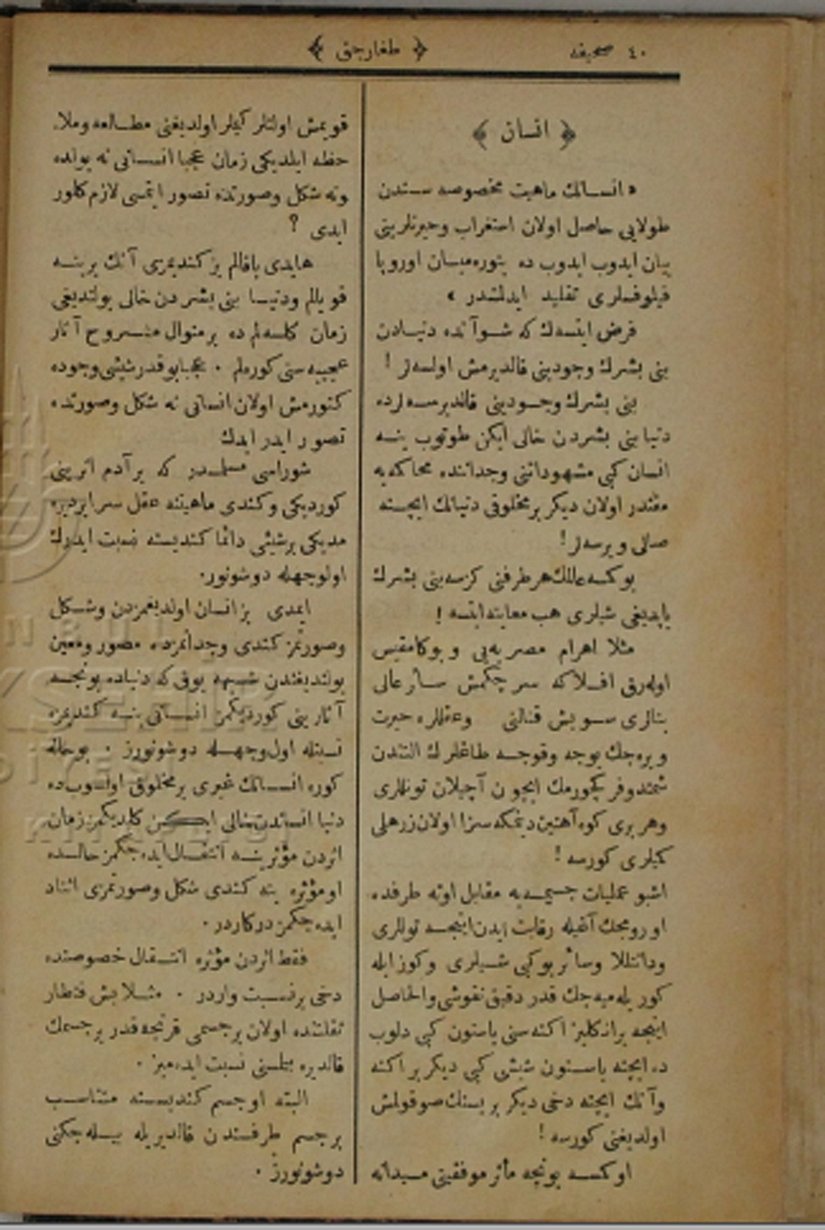 ٤٠ صحیفه
﴿ طغارجق ﴾
﴿ انسان ﴾
« انسانك ماهیت مخصوصه سندن
طولایی حاصل اولان استغراب وحیرتلرینی
بیان ایدوب ایدوب ده یتوره‌میان اوروپا
فیلوفسلری تقلید ایدلمشدر »
فرض ایتسه‌ك كه شو آنده دنیادن
بنی بشرك وجودینی قالدیرمش اولسه‌لر !
بنی بشرك وجودینی قالدیرسه‌لرده
دنیا بنی بشردن خالی ایكن طوتوب ینه
انسان كبی مشهوداتنی وجداننده محاكمه‌یه
مقتدر اولان دیكر بر مخلوقی دنیانك ایچنه
صالی ویرسه‌لر !
بوكمسه عالمك هر طرفنی كزسه بنی بشرك
یاپدیغی شیلری هب معاینه ایتسه !
مثلا اهرام مصریه‌یی و بوكا مقیس
اوله‌رق افلاكه سر چكمش سائر عالی
بنالری سویش قنالنی وعقللره حیرت
ویره‌جك یوجه وقوجه طاغلرك التندن
شمندوفر كچورمك ایچون آچیلان تونللری
وهر بری كوه آهنین دینمكه سزا اولان زرهلی
كمیلری كورسه !
اشبو عملیات جسیمه‌یه مقابل اوته طرفده
اورومجك آغیله رقابت ایدن اینجه توللری
ودانتللا وسائر بوكبی شیلری وكوز ایله
كوریله‌میه‌جك قدر دقیق نقوشی والحاصل
اینجه بر انكلیز اكنه‌سنی یاستون كبی دلوب
ده ایچنه یاستون شیشی كبی دیكر بر اكنه
وآنك ایچنه دخی دیكر برینك صوقولمش
اولدیغنی كورسه !
اوكمسه بونجه مآثر موفقیتی میدانه
قویمش اولنلر كیملر اولدیغنی مطالعه وملا-
حظه ایلدیكی زمان عجبا انسانی نه یولده
ونه شكل وصورتده تصور ایتمسی لازم كلور
ایدی ؟
هایدی باقالم بز كندیمزی آنك یرینه
قویالم ودنیا بنی بشردن خالی بولندیغی
زمان كلمه‌لم ده بر منوال مشروح آثار
عجیبه‌سنی كوره‌لم . عجبا بوقدر شیئی وجوده
كتورمش اولان انسانی نه شكل وصورتده
تصور ایدر ایدك
شوراسی مسلمدر كه بر آدم اثرینی
كوردیكی وكندی ماهیتنه عقل سر ایردیره-
مدیكی بر شیئی دائما كندیسنه نسبت ایدرك
اولوجهله دوشونور.
ایمدی بز انسان اولدیغمزدن وشكل
وصورتمز كندی وجدانمزده مصور ومعین
بولندیغندن شبهه یوق كه دنیاده بونجه
آثارینی كوردیكمز انسانی ینه كندیمزه
نسبتله اول وجهله دوشونورز . بو حاله
كوره انسانك غیری بر مخلوق اولوب ده
دنیا انساندن خالی ایكن كلدیكمز زمان
اثردن مؤثرینه انتقال ایده‌جكمز حالده
او مؤثره ینه كندی شكل وصورتمزی اسناد
ایده‌جكمز دركاردر .
فقط اثردن مؤثره انتقال خصوصنده
دخی بر نسبت واردر . مثلا بش قنطار
ثقلتنده اولان بر جسمی قرنجه قدر بر جسمك
قالدیره بیلمسنی نسبت ایده‌میز .
البته او جسم كندیسنه متناسب
بر جسم طرفندن قالدیریله بیله‌جكنی
دوشونورز .